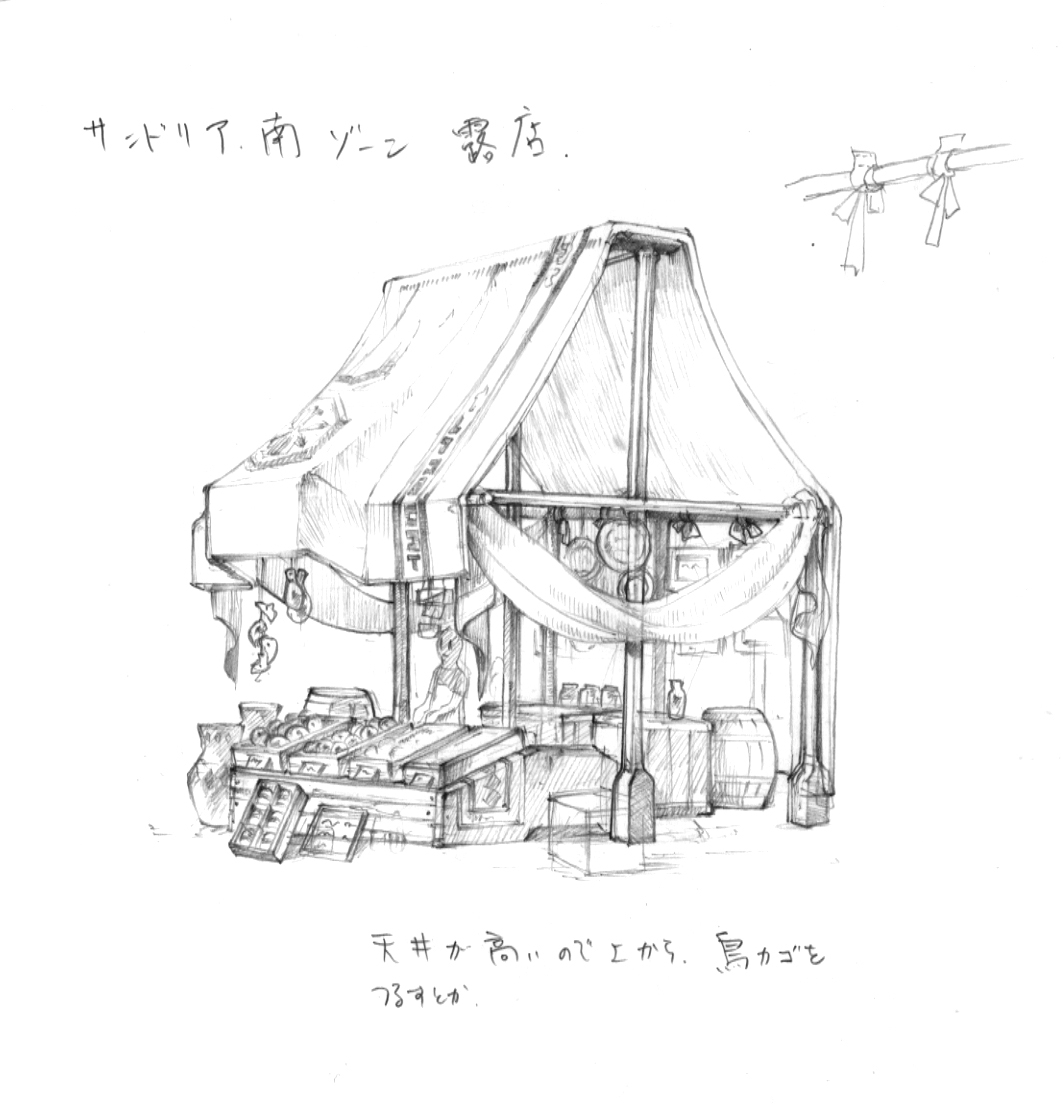 サンドリア.南ゾーン 露店.
天井が高いので上から.鳥カゴを
つるすとか.